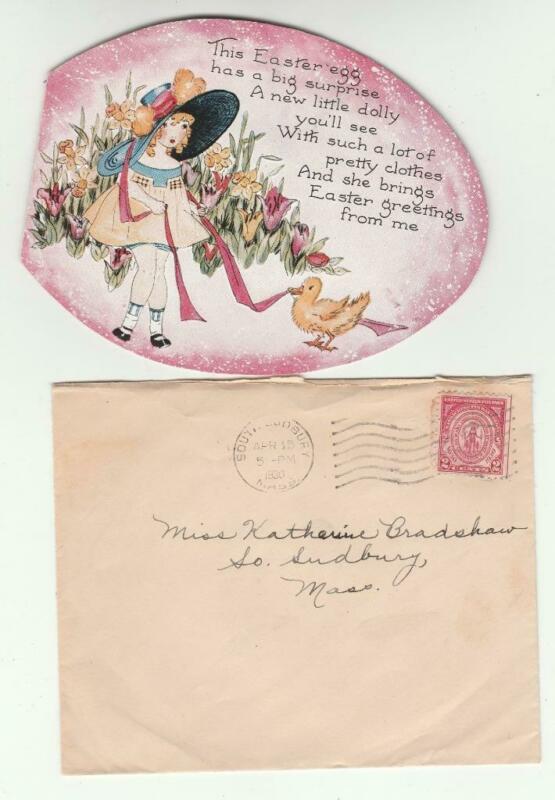 This Easter egg
has a big surprise
A new little dolly
you'll see
With such a lot of
pretty clothes
And she brings
Easter greetings
from me
SOUTH SUDBURY
APR 15
5-PM
1930
MASS.
2 CENTS 2
Miss Katherine Bradshaw
So. Sudbury,
Mass.